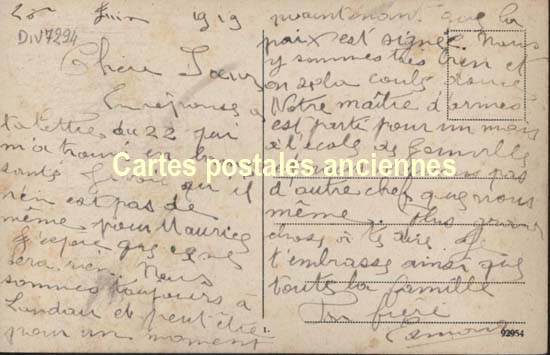 Juin 1919
DIV7294
Chere Soeur
En réponse a
ta lettre du 22 qui
m'a trouvé en bonne
santé je vois qu'il
n'en est pas de
même pour Maurice
J'espère que ce ne
sera rien. Nous
sommes toujours à
Landau et peut être
pour un moment
maintenant que la
paix est signée. Nous
y sommes très bien et
on se la coule douce
Notre maître d'armes
est parti pour un mois
à l'école de Joinville
pas
d'autre chef que nous
même. Plus grand
chose à te dire. Je
t'embrasse ainsi que
toute la famille
Ton frère
Cartes postales anciennes
1.
92954